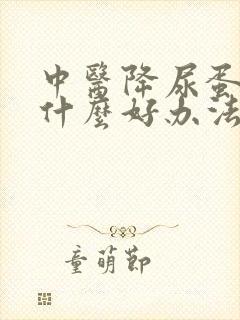 中醫降尿蛋
什麼好办法
童萌節